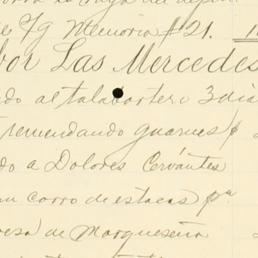 Memoria #21.
bor Las Mercedes
do al talabartero 3 dia
remendando guarnes p
do a Dolores Cervantes
un corro de estacas pa
resa de Marqueseña